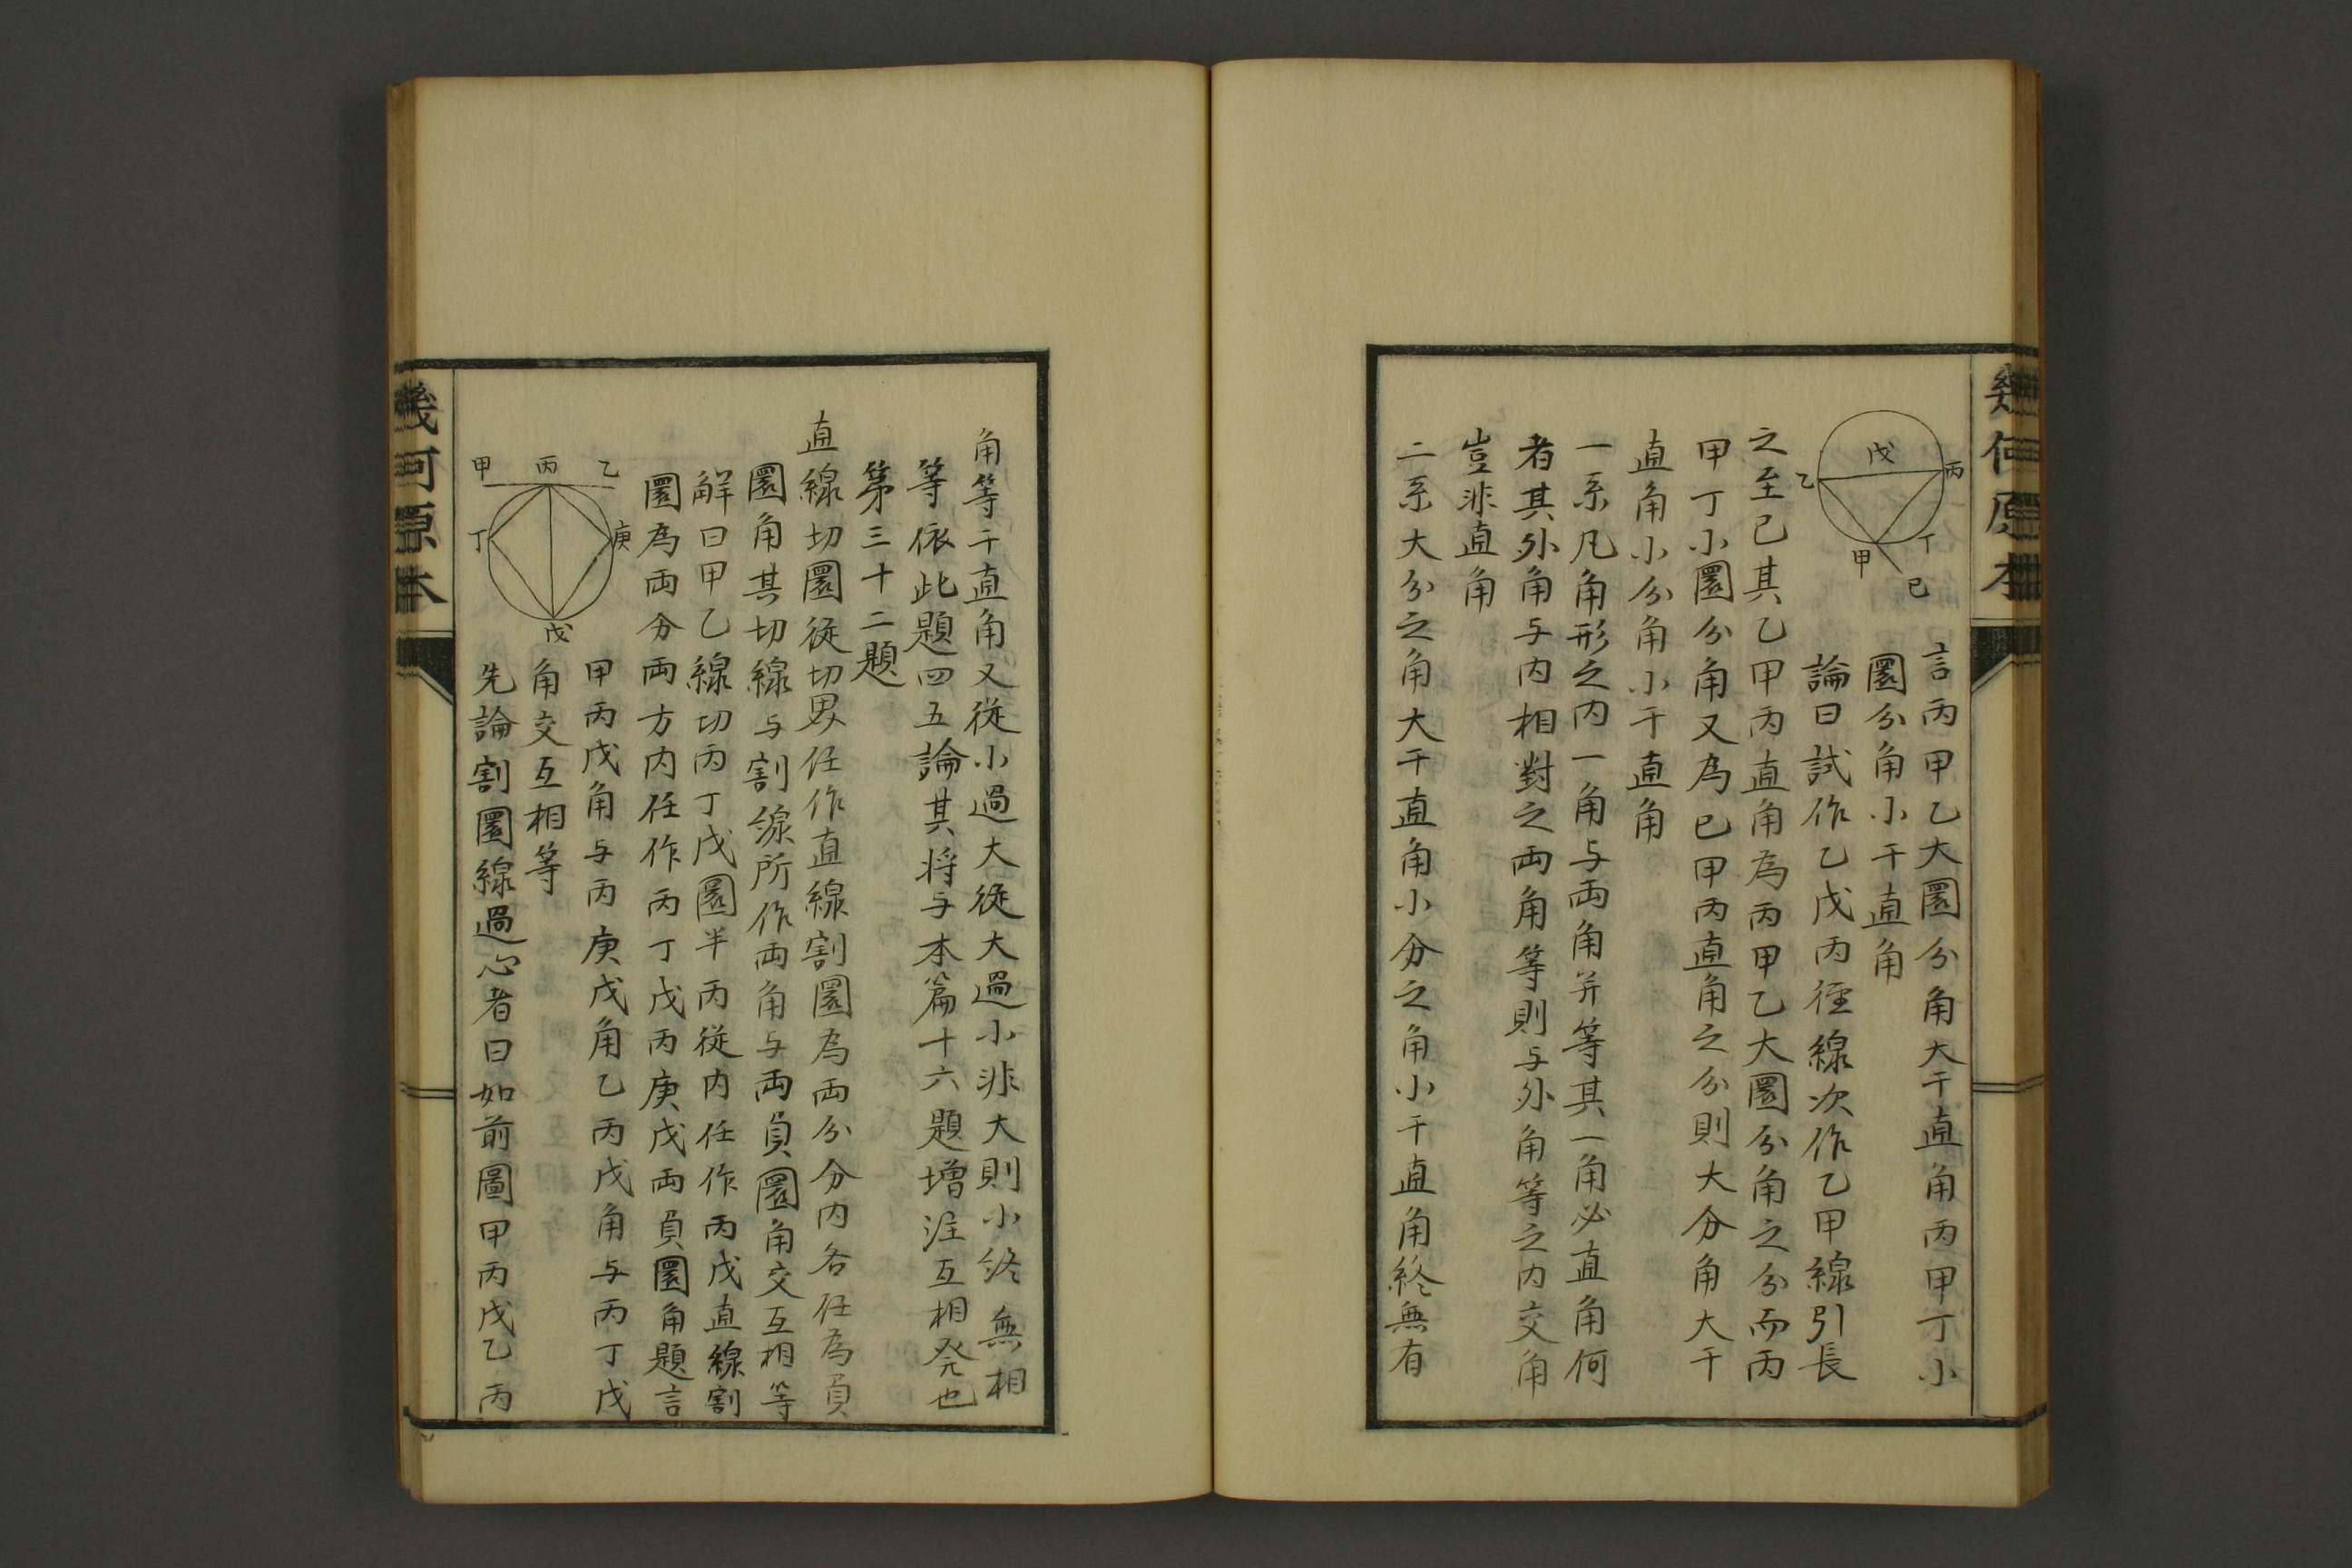 幾何原本
丙
戊
乙
丁
甲
己
言丙甲乙大圜分角大于直角丙甲丁小
圜分角小于直角
論曰試作乙戊丙徑線次作乙甲線引長
之至己其乙甲丙直角為丙甲乙大圜分角之分而丙
甲丁小圜分角又為己甲丙直角之分則大分角大于
直角小分角小于直角
一系凡角形之内一角与兩角并等其一角必直角何
者其外角与内相對之兩角等則与外角等之内交角
豈非直角
二系大分之角大于直角小分之角小于直角終無有
角等于直角又從小過大從大過小非大則小終無相
等依此題四五論其将与本篇十六題增注互相発也
第三十二題
直線切圜從切界任作直線割圜為兩分分内各任為負
圜角其切線与割線所作兩角与兩負圜角交互相等
解曰甲乙線切丙丁戊圜半丙從内任作丙戊直線割
圜為兩分兩方内任作丙丁戊丙庚戊兩負圜角題言
甲丙戊角与丙庚戊角乙丙戊角与丙丁戊
角交互相等
先論割圜線過心者曰如前圖甲丙戊乙丙
乙
丙
甲
庚
丁
戊
幾何原本